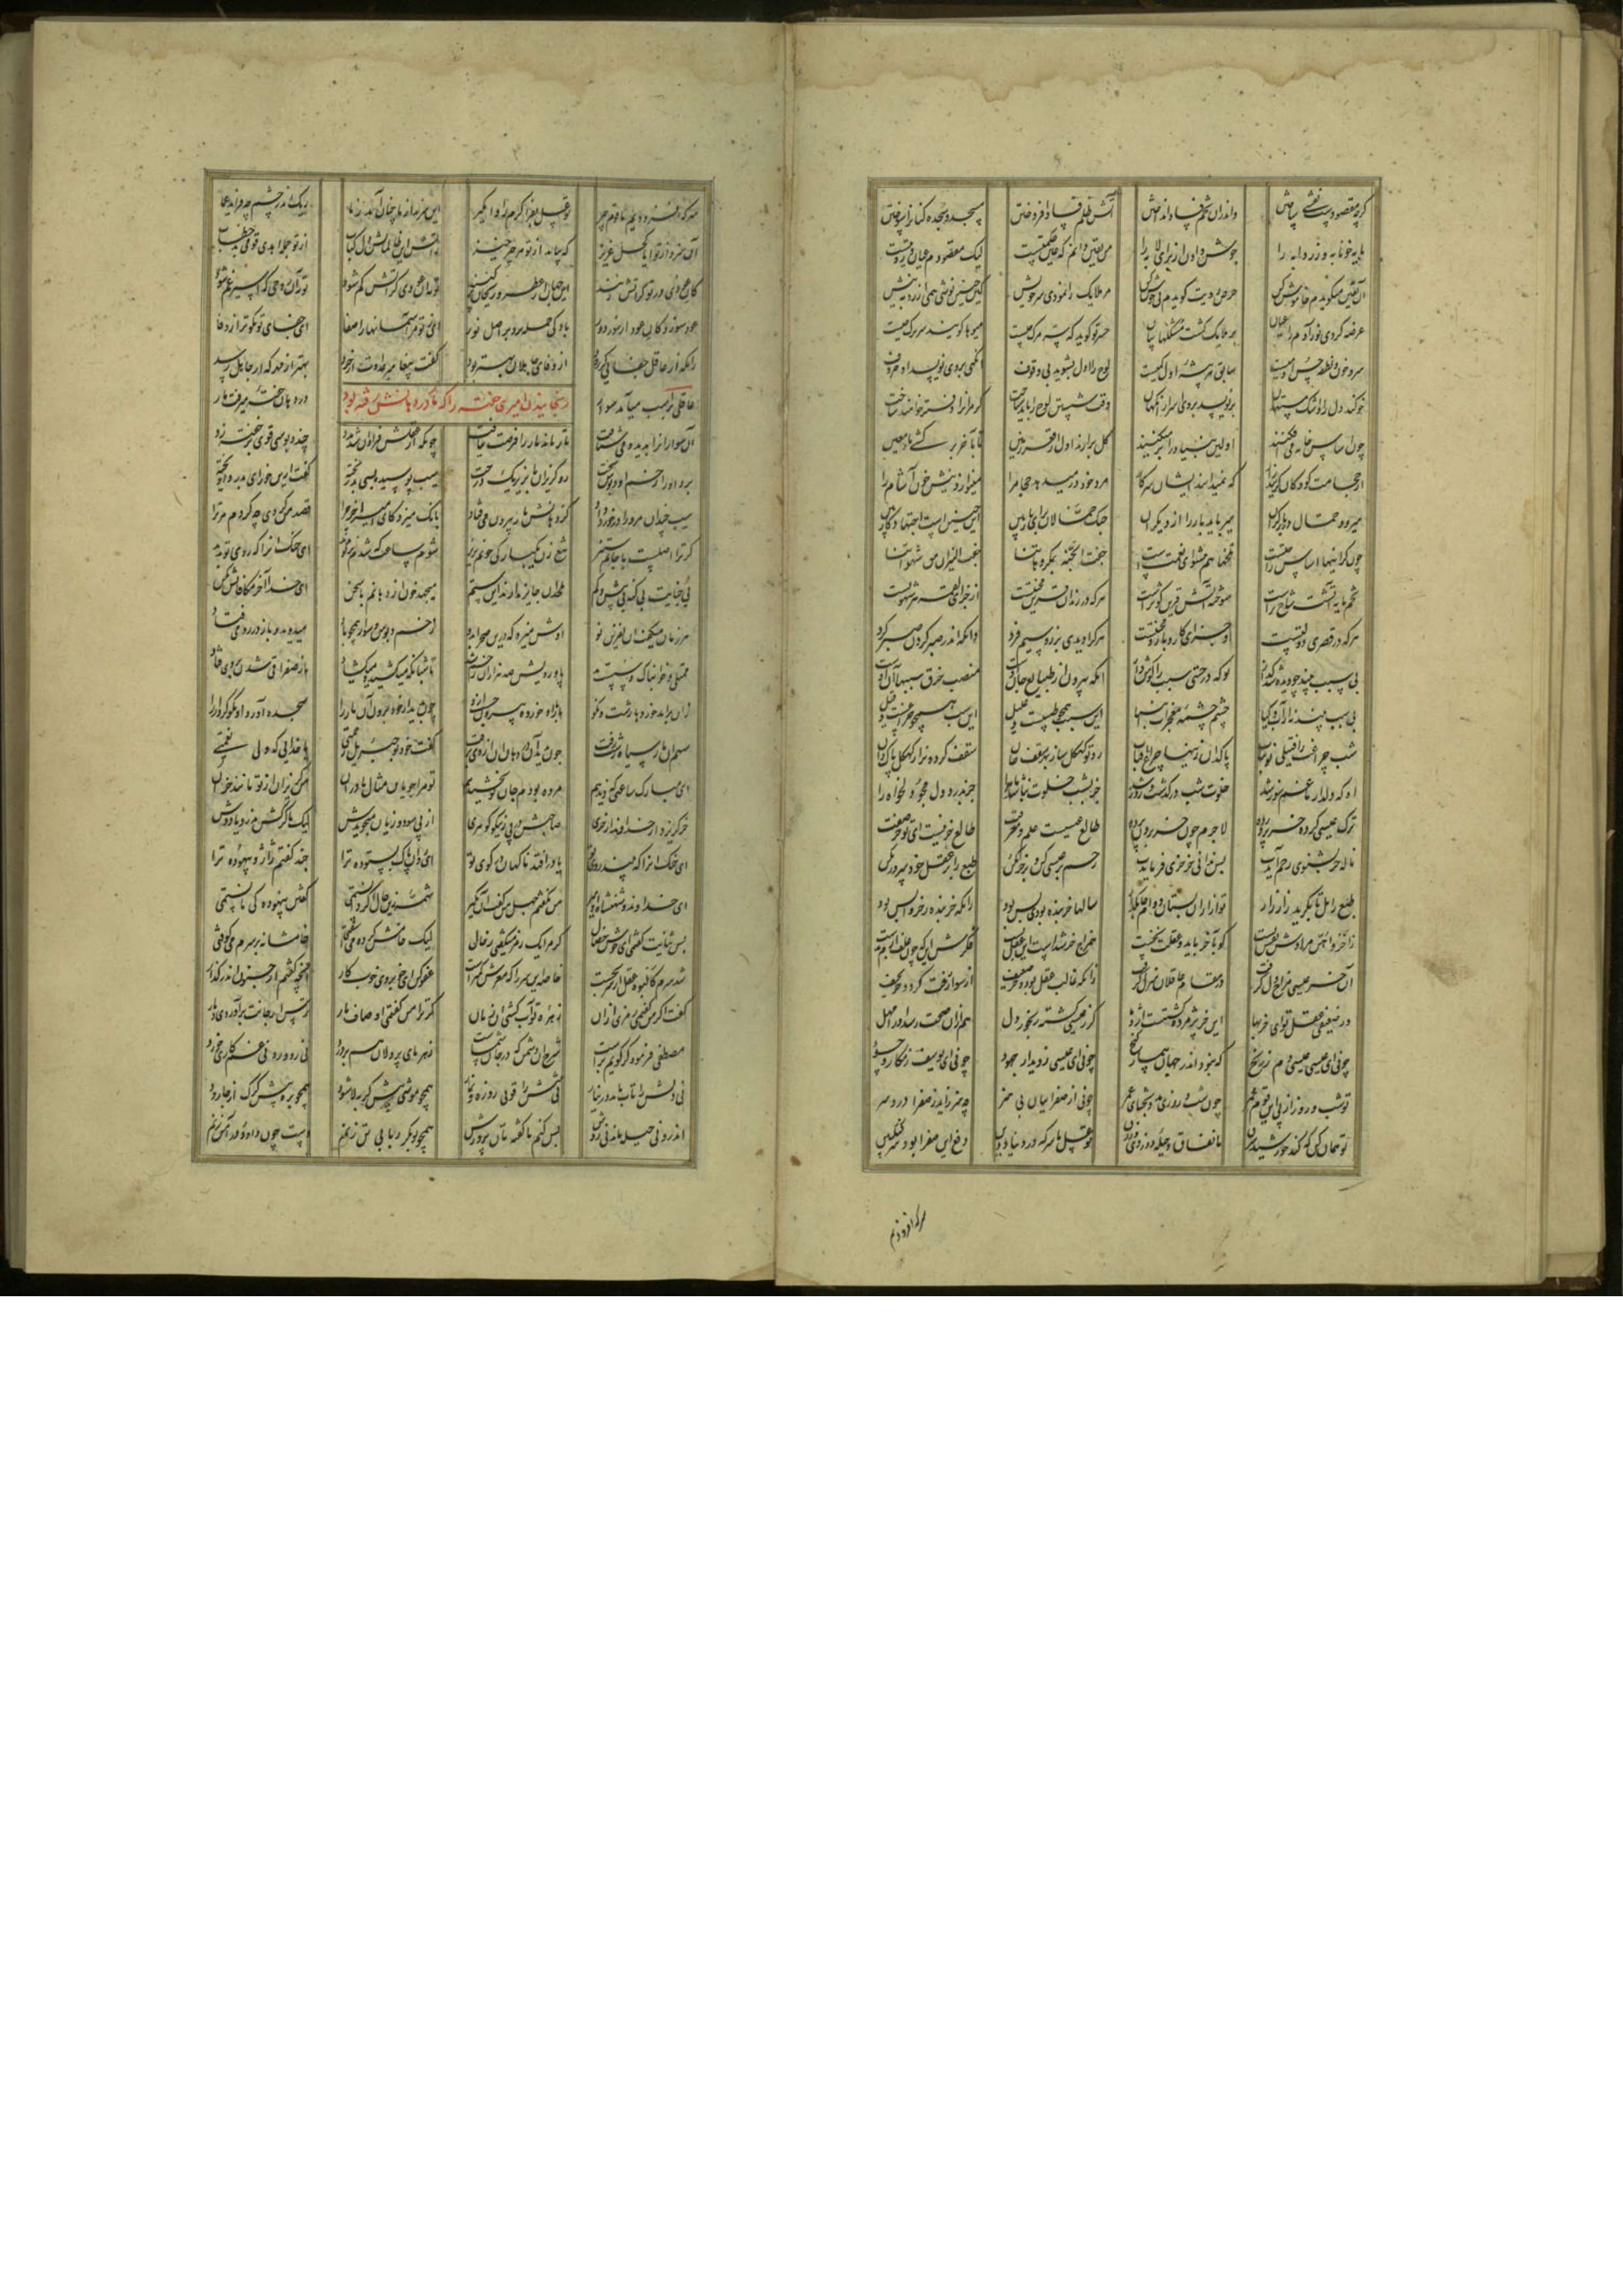 که چه مقصودست نقشی ساختن واندران تخم فساد انداختن آتش ظلم و فساد افروختن مسجد و سجده کنان را سوختن
مایه خونابه و زردابه را جوش دادن از برای لابه را من یقین دانم که عین حکمتست لیک مقصودم عیان و رؤیتست
آن یقین میگویدم خاموش کن حرص رؤیت گویدم نی جوش کن مر ملایک را نمودی سر خویش کین چنین نوشی همی ارزد بنیش
عرضه کردی نور آدم را عیان بر ملایک گشت مشکلها بیان حشر تو گوید که سر مرگ چیست میوها گویند سر برگ چیست
سر خون و نطفه حسن آدمیست سابق هر بیشیی اول کمیست لوح را اول بشوید بی وقوف آنگهی بروی نویسد او حروف
خون کند دل را و اشک مستهان بر نویسد بروی اسرار آنگهان وقت شستن لوح را باید شناخت که مر آنرا دفتری خواهند ساخت
چون اساس خانه می افکنند اولین بنیاد را بر میکنند گل برآرند اول از قعر زمین تا بآخر بر کشی ماء معین
از حجامت کودکان گریند زار که نمیدانند ایشان سر کار مرد خود زر میدهد حجام را مینوازد نیش خون آشام را
میرود حمال زی بار گران میرباید بار را از دیگران جنگ حمالان برای بار بین این چنین است اجتهاد کار بین
چون گرانیها اساس راحتست تلخها هم پیشوای نعمت است حفت الجنة بمکروهاتنا حفت النیران من شهواتنا
تخم مایه آتشت شاخ ترست سوخته آتش قرین کوثرست هر که در زندان قرین محنتیست آن جزای لقمه و شهوتیست
هر که در قصری قرین دولتیست آن جزای کارزار و محنتیست هر کرا دیدی بزر و سیم فرد دانکه اندر صبر کردن صبر کرد
بی سبب بیند چو دیده شد گذار تو که در حسی سبب را گوش دار آنکه بیرون از طبایع جان اوست منصب خرق سببها آن اوست
بی سبب بیند نه از آب و گیا چشم چشمه معجزات انبیا این سبب همچون طبیبست و علیل این سبب همچون چراغست و فتیل
شب چراغت را فتیل نو بتاب پاک دان زینها چراغ آفتاب رو تو کهگل ساز بهر سقف خان سقف گردون را ز کهگل پاک دان
اه که دلدار ما غم سوز شد خلوت شب در گذشت و روز شد جز بشب جلوه نباشد ماه را جز بدرد دل مجو دلخواه را
ترک عیسی کرده خر پرورده لاجرم چون خر برون پرده طالع عیسیست علم و معرفت طالع خر نیست ای تو خر صفت
ناله خر بشنوی رحم آیدت پس ندانی خر خری فرمایدت رحم بر عیسی کن و بر خر مکن طبع را بر عقل خود سرور مکن
طبع را هل تا بگرید زار زار تو ازو بستان و وام جان گزار سالها خر بنده بودی بس بود زانکه خر بنده ز خر واپس بود
ز اخروهن مرادش نفس تست کو بآخر باید و عقلت نخست هم مزاج خر شدست این عقل پست فکرش این که چون علف آرم بدست
آن خر عیسی مزاج دل گرفت در مقام عاقلان منزل گرفت زانکه غالب عقل بود و خر ضعیف از سوار زفت گردد خر نحیف
در ضعیفی عقل تو ای خربها این خر پژمرده گشتست اژدها گر ز عیسی گشته رنجور دل هم ازان صحت رسد او را مهل
چونی ای عیسی عیسی دم ز رنج که نبود اندر جهان بی مار گنج چونی ای عیسی ز دیدار جهود چونی ای یوسف ز مکار و حسود
تو شب و روز از پی این قوم غمر چون شب و روزی مددبخشای عمر چونی از صفراییان بی هنر چه هنر زاید ز صفرا درد سر
تو همان کن که کند خورشید شرق با نفاق و حیله و دزدی و زرق تو عسل ما سرکه در دنیا و دین دفع این صفرا بود سرکنگبین
سرکه افزودیم
سرکه افزودیم ما قوم زحیر تو عسل بفزا کرم را وامگیر این سزید از ما چنان آمد ز ما ریگ اندر چشم چه فزاید عما
آن سزد از تو ایا کحل عزیز که بیابد از تو هر ناچیز چیز ز آتش این ظالمانت دل کباب از تو جمله اهد قومی بد خطاب
کان عودی در تو گر آتش زنند این جهان از عطر و ریحان آگنند تو نه آن عودی کز آتش کم شود تو نه آن روحی که اسیر غم شود
عود سوزد کان عود از سوز دور باد کی حمله برد بر اصل نور ای ز تو مر آسمانها را صفا ای جفای تو نکوتر از وفا
زانکه از عاقل جفایی گر رود از وفای جاهلان بهتر بود گفت پیغامبر عداوت از خرد بهتر از مهر که از جاهل رسد
رنجانیدن امیری خفته را که مار در دهانش رفته بود
عاقلی بر اسب میآمد سوار در دهان خفته میرفت مار
آن سوار آنرا بدید و می شتافت تا رهاند مار را فرصت نیافت چونکه از عقلش فراوان شد مدد چند دبوسی قوی بر خفته زد
برد او را زخم آن دبوس سخت زو گریزان تا بزیر یک درخت سیب پوسیده بسی بد ریخته گفت ازین خور ای بدرد آویخته
سیب چندان مرد را در خورد داد کز دهانش باز بیرون می فتاد بانگ میزد کای امیر آخر چرا قصد من کردی چه کردم مر ترا
گر ترا ز اصلست با جانم ستیز تیغ زن یکبارگی خونم بریز شوم ساعت که شدم بر تو پدید ای خنک آنرا که روی تو ندید
بی جنایت بی گنه بی بیش و کم ملحدان جایز ندارند این ستم میجهد خون از دهانم با سخن ای خدا آخر مکافاتش تو کن
هر زمان میگفت او نفرین نو اوش میزد که درین صحرا بدو زخم دبوس و سوار همچو باد میدوید و باز در رو می فتاد
ممتلی و خوابناک و سست بد پا و رویش صد هزاران زخم شد تا شبانگه میکشید و میگشاد تا ز صفرا قی شدن بروی فتاد
زان برآمد خورده ها زشت و نکو مار با آن خورده بیرون جست ازو چون بدید از خود برون آن مار را سجده آورد آن نکو کردار را
سهم آن مار سیاه زشت زفت چون بدید آن دردها از وی برفت گفت خود تو جبرئیل رحمتی یا خدایی که ولی نعمتی
ای مبارک ساعتی که دیدیم مرده بودم جان نو بخشیدیم تو مرا جویان مثال مادران من گریزان از تو مانند خران
خر گریزد از خداوند از خری صاحبش در پی ز نیکو گوهری از پی سود و زیان میجویدش لیک تا گرگش ندرد یا ددش
ای خنک آنرا که بیند روی تو یا در افتد ناگهان در کوی تو ای روان پاک بستوده ترا چند گفتم ژاژ و بیهوده ترا
ای خداوند و شهنشاه و امیر من نگفتم جهل من گفت آن مگیر شمه زین حال اگر دانستمی گفتن بیهوده کی تانستمی
بس ثنایت گفتمی ای خوش خصال گر مرا یک رمز میگفتی ز حال لیک خامش کرده می آشوفتی خامشانه بر سرم می کوفتی
شد سرم کالیوه عقل از سر بجست خاصه این سر را که مغزش کمترست عفو کن ای خوبروی خوب کار آنچه گفتم از جنون اندر گذار
گفت اگر من گفتمی رمزی ازان زهره تو آب گشتی آن زمان گر ترا من گفتمی اوصاف مار ترس از جانت برآوردی دمار
مصطفی فرمود گر گویم براست شرح آن دشمن که در جان شماست زهرهای پردلان هم بر درد نی رود ره نی غم کاری خورد
نی دلش را تاب ماند در نیاز نی تنش را قوت روزه و نماز همچو موشی پیش گربه لا شود همچو بره پیش گرگ از جا رود
اندرو نی حیله ماند نی روش پس کنم ناگفته تان من پرورش همچو بوبکر ربابی تن زنم دست چون داود در آهن زنم